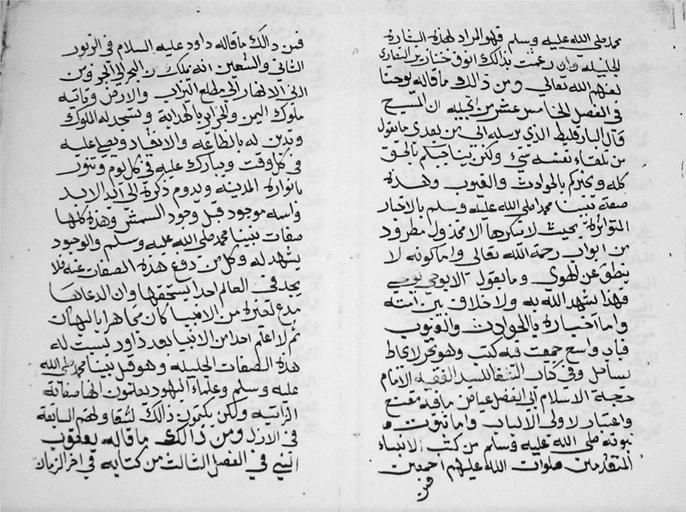 محمد صلى الله عليه وسلم فهو المراد لهذه البشارة
الجليله وان رغمت بذالك انوف خنازير النصارى
لعنهم الله تعالى ومن ذالك ما قاله يوحنا
في الفصل الخامس عشر من انجيله ان المسيح
قال البارقليط الذي يرسله ابي من بعدي ما يقول
من تلقاء نفسه شيء ولكن يناجيكم بالحق
كله ويخبركم بالحوادث والغيوب وهذه
صفة نبينا محمد صلى الله عليه وسلم بالاخبار
المتواترة بحيث لا ينكرها الا مخذول مطرود
من ابواب رحمة الله تعالى واما كونه لا
ينطق عن الهوى وما يقول الا بوحي يوحى
فهذا يشهد الله به ولا خلاف بين امته
واما اخباره بالحوادث والغيوب
فباب واسع جمعت فيه كتب وهو بحر لا
ساحل وفي كتاب الشفا للسيد الفقيه الامام
حجة الاسلام ابي الفضل عياض ما فيه مقنع
واعتبار لاولي الالباب واما ثبوت
نبوته صلى الله عليه وسلم من كتب الانبياء
المتقدمين صلوات الله عليهم اجمعين
فمن
فمن ذالك ما قاله داود عليه السلام في الزبور
الثاني والسبعين انه يملك من البحر الى البحر ومن
ادنى الانهار الى مطلع التراب والارض وتاته
ملوك اليمن والجزاير بالهداية وتسجد له الملوك
وتدين له بالطاعه والانقياد ويصلى عليه
في كل وقت ويبارك عليه في كل يوم وتنور
بانواره المدينه ويدوم ذكره الى ابد الابد
واسمه موجود قبل وجود الشمس وهذه كلها
صفات نبينا محمد صلى الله عليه وسلم والوجود
يشهد له وكل من دفع هذه الصفات عنه فلا
يجد في العالم احدا يستحقها وان ادعاها
مدع لغيره من الانبيا كان مجاهرا بالبهتان
ثم لا اعلم احدا من الانبيا بعد داود ليست له
هذه الصفات الجليله وهو قبل نبينا محمد صلى الله
عليه وسلم وعلماء اليهود يعلمون انها صفاته
الذاتيه ولكن يكتمون ذالك لشقاوتهم السابقة
في الازل ومن ذالك ما قاله يعقوب
النبي في الفصل الثالث من كتابه في اخر الزمان